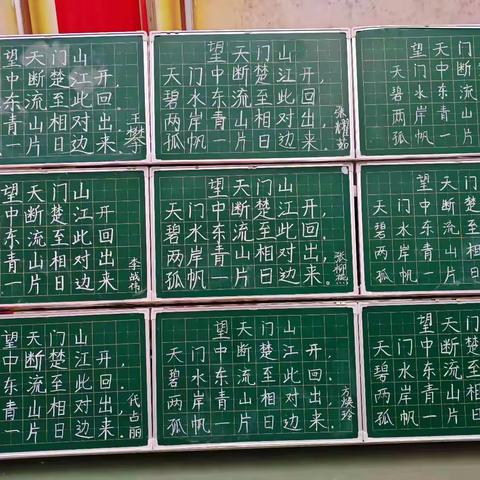 望天门山
中断楚江开,
东流至此回。
青山相对出,
一片日边来。
望天门山
天门中断楚江开,
碧水东流至此回。
两岸青山相对出,
孤帆一片日边来。
张耀茹
望天门
天门中断
碧水东流
两岸青山
孤帆一片
望天门山
中断楚江开,
东流至此回
青山相对出
一片日边来
李战伟
望天门山
天门中断楚江开,
碧水东流至此回。
两岸青山相对出,
孤帆一片日边来。
张柳燕
望天门
天门中断
碧水东流
两岸青山
孤帆一片
望天门山
中断楚江开,
东流至此回。
青山相对出,
一片日边来。
代占丽
望天门山
天门中断楚江开,
碧水东流至此回。
两岸青山相对出,
孤帆一片日边来。
方焕玲
望天门
天门中断
碧水东流
两岸青山
孤帆一片